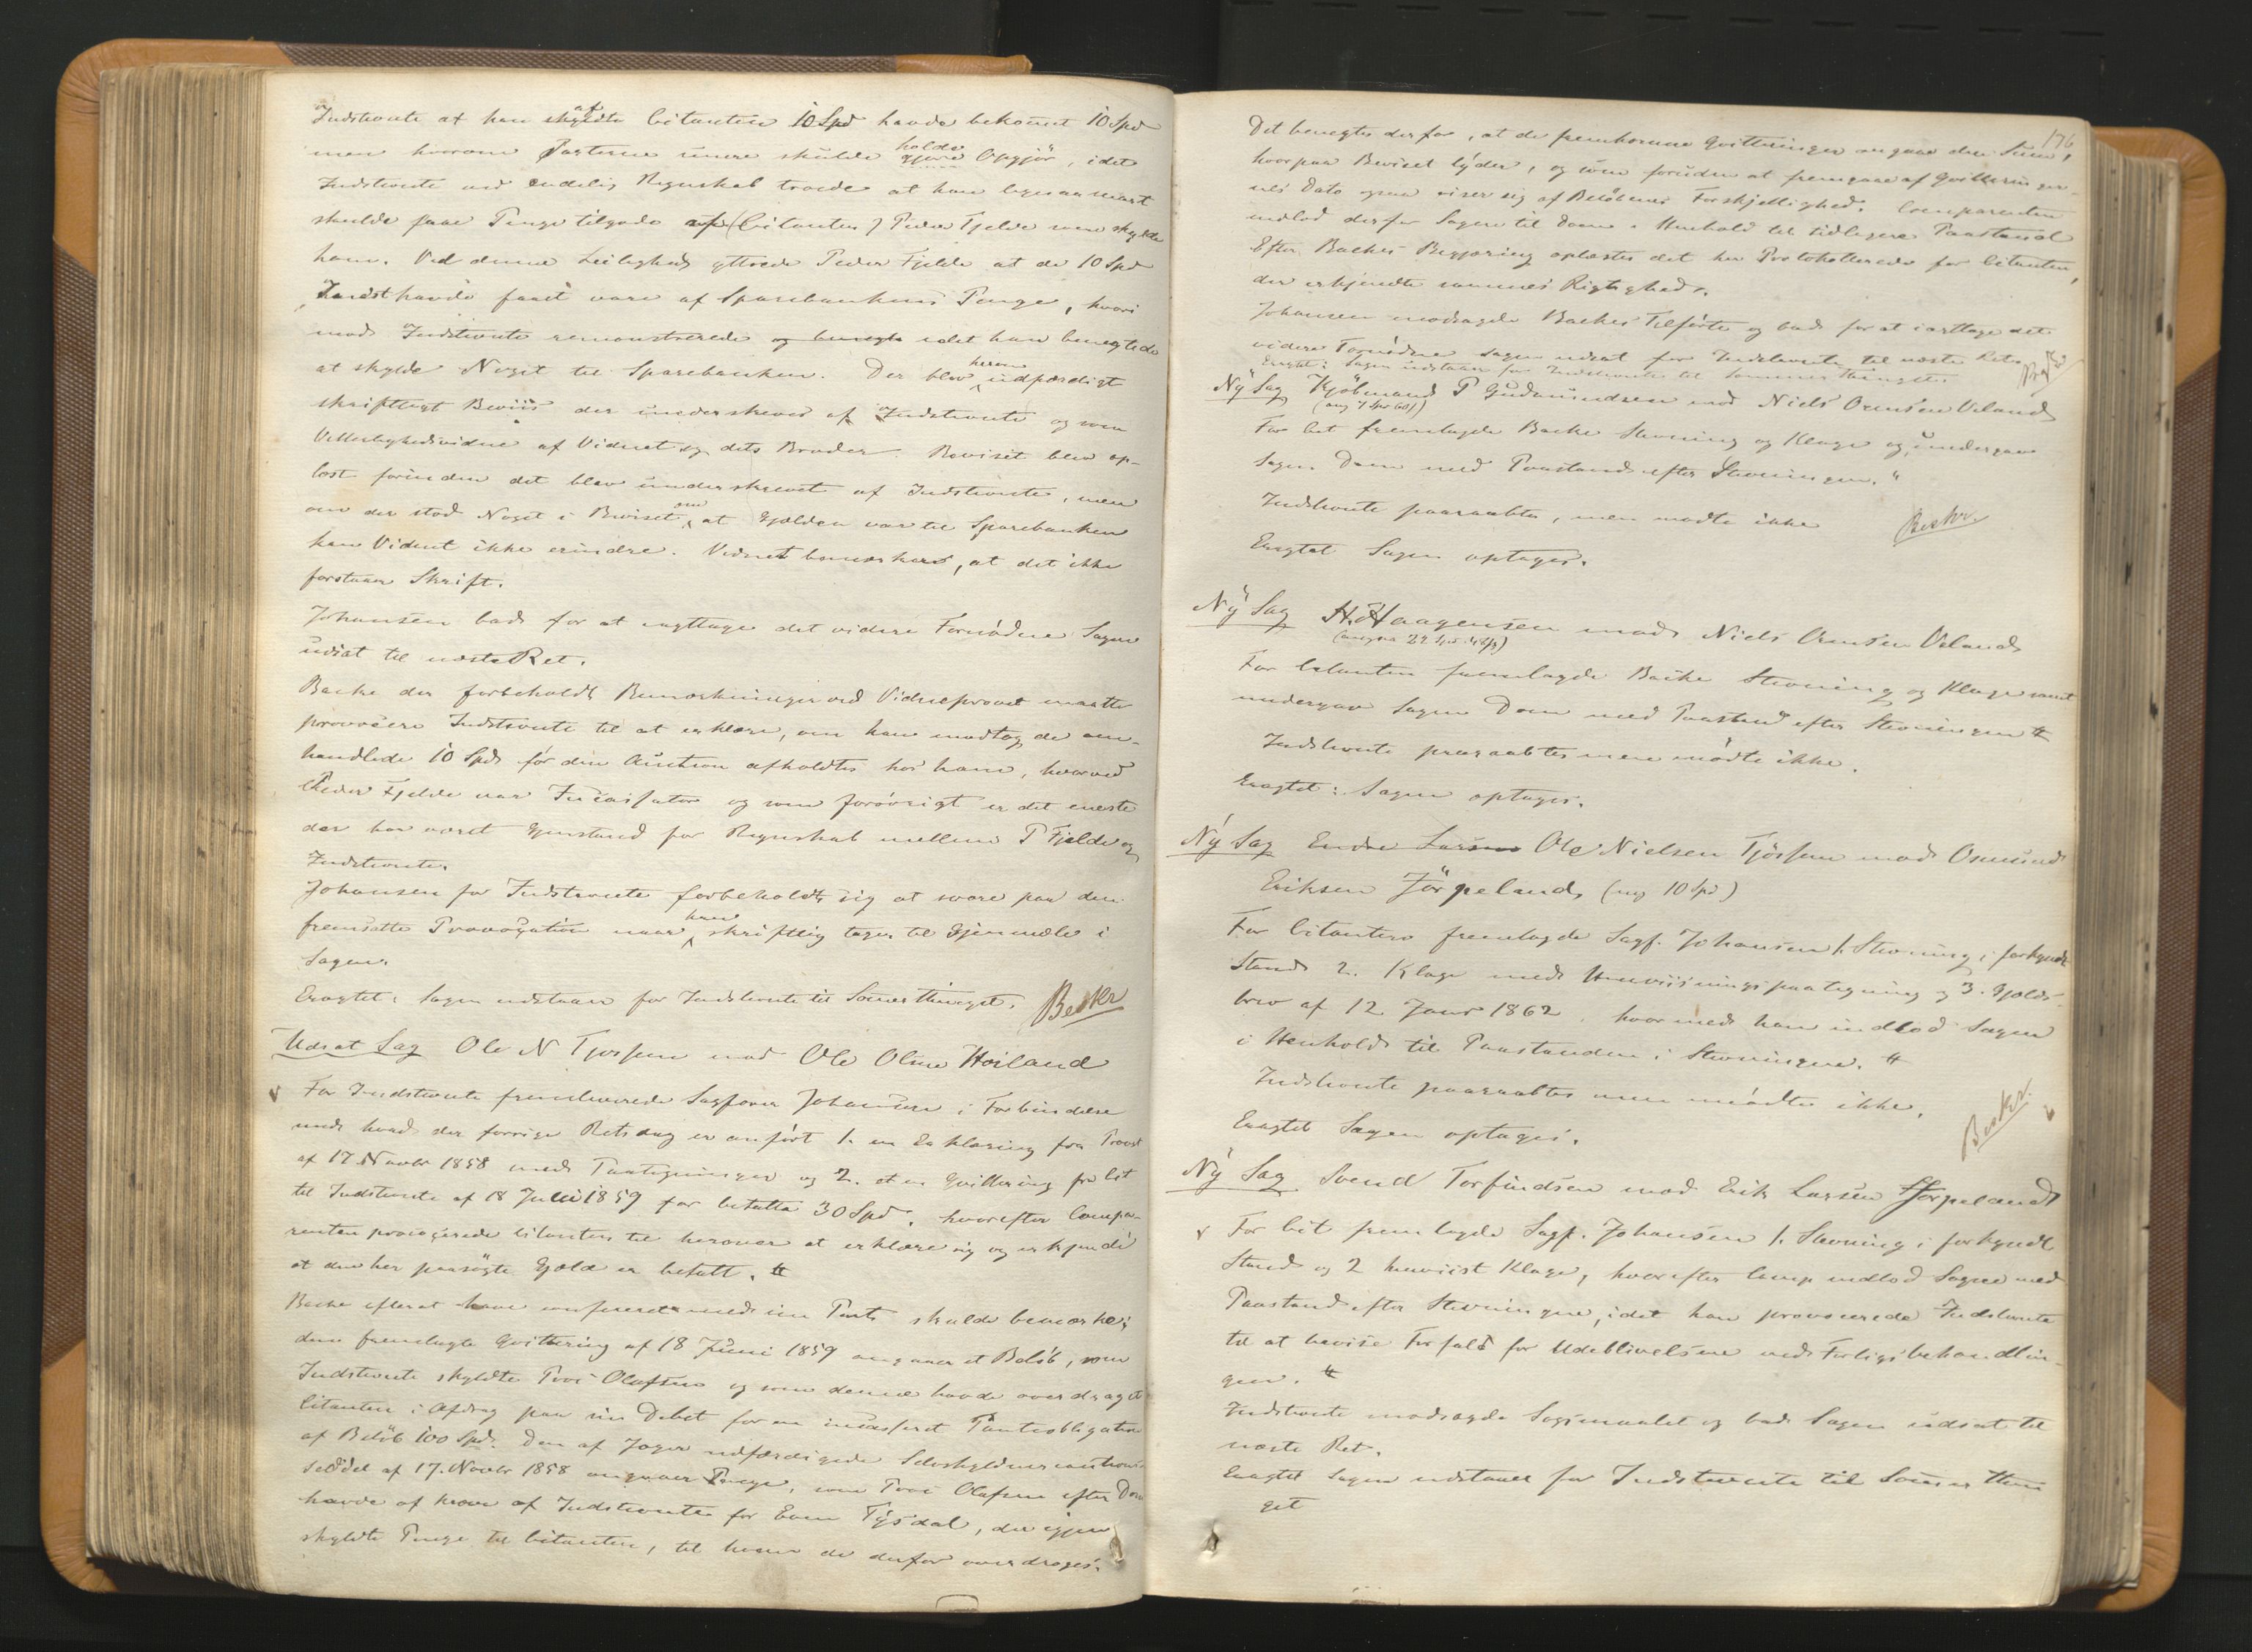 Indstevnte at han af Citanten 10 Spd havde bekommet 10 Spd
men hvorom Parterne siden skulde holde Opgjör, idet
Indstevnte ved endelig Regnskab troede at han ligesaasnart
skulde faae Penge tilgode af (Citanten) Peder Fjelde som skyldte
ham. Ved denne Leilighed yttrede Peder Fjelde at de 10 Spd
Indst havde faaet vare af Sparebankens Penge, hvori
mod Indstevnte remonstrerede og benegte idet han benegtede
at skylde Noget til Sparebanken. Der blev herom udfærdiget
skriftligt Beviis der underskreves af Indstevnte og som
Vitterlighedsvidne af Vidnet og dets Broder. Beviset blev op-
læst forinden det blev underskrevet af Indstevnte, men
om der stod Noget i Beviset om at Gjælden var til Sparebanken
kan Vidnet ikke erindre. Vidnet bemærker, at det ikke
forstaar Skrift.
Johansen bad for at iagttage det videre Fornödne Sagen
udsat til næste Ret.
Backe der forbeholdt Bemærkninger ved Vidneprovet maatte
provocere Indstevnte til at erklære, om han modtog de om-
handlede 10 Spd för den Auction afholdtes hos ham, hvorved
Peder Fjelde var Incassator og som forövrigt er det eneste
der har været Gjenstand for Regnskab mellem P Fjelde og
Indstevnte.
Johansen for Indstevnte forbeholdt sig at svare paa den
fremsatte Provocation naar han skriftlig tager til Gjenmæle i
Sagen.
Eragtet: Sagen udstaar for Indstevnte til Sommerthinget. Beskr
Udsat Sag Ole N Tjossem mod Ole Olsen Høiland
For Indstevnte fremleverede Sagförer Johansen i Forbindelse
med hvad der forrige Retsdag er anfört 1. en Erklæring fra Provst
af 17 Novbr 1858 med Paategninger og 2. et en Qvittering fra Cit
til Indstevnte af 18 Juni 1859 for betalte 30 Spd, hvorefter Compa-
renten provocerede Citanten til herover at erklære sig og erkjende
at den her paasögte Gjæld er betalt.
Backe efterat have confereret med sin Part skulde bemærke:
den fremlagte Qvittering af 18 Juni 1859 angaaer et Belöb, som
Indstevnte skyldte Olafsen og som denne havde overdraget
Citanten i Afdrag paa sin Debet for en incasseret Pantobligation
af Belöb 100 Spd. Den af udfærdigede Selvskyldnercautions
seddel af 17. Novbr 1858 angaaer Penge, som Olafsen efter Dom
havde at kræve af Indstevnte for Even Tysdal, der igjen
skyldte Penge til Citanten, til hvem de derfor overdroges.
176
Det benegtes derfor, at de fremkomne Qvitteringer angaae den Sum,
hvorpaa Beviset lyder, og som foruden at fremgaae af Qvitteringer-
nes Dato ogsaa viser sig af Belöbenes Forskjellighed. Comparenten
indlod derfor Sagen til Dom i Henhold til tidligere Paastand
Efter Backes Begjæring oplæstes det her Protokollerede for Citanten,
der erkjendte sammes Rigtighed.
Johansen modsagde Backes Tilförte og bad for at iagttage det
videre Fornödne Sagen udsat for Indstevnte til næste Ret.
Eragtet: Sagen udstaar for Indstevnte til Sommerthinget
Ny Sag Kjöbmand P Gudmundsen mod Niels Omsen Veland
For Cit fremlagde Backe Stevning og Klage og undergav
Sagen Dom med Paastand efter Stevningen.
Indstevnte paaraabtes, men mødte ikke Beskr
Eragtet Sagen optages.
Ny Sag H. Haagensen mod Niels Omsen Veland
For Citanten fremlagde Backe Stevning og Klage samt
undergav Sagen Dom med Paastand efter Stevningen
Indstevnte paaraabtes men mödte ikke.
Eragtet: Sagen optages.
Ny Sag Endre Larsen Ole Nielsen Tjössem mod Osmund
Eriksen Jörpeland, (ang 10 Spd)
For Citanten fremlagde Sagf. Johansen 1. Stevning i forkyndt
Stand 2. Klage med Henviisningspaategning og 3. Gjelds-
brev af 12 Janr 1862, hvormed han indlod Sagen
i Henhold til Paastanden i Stevningen.
Indstevnte paaraabtes men mödte ikke.
Beskr.
Eragtet Sagen optages.
Ny Sag Svend Torfindsen mod Erik Larsen Jörpeland
For Cit fremlagde Sagf. Johansen 1. Stevning i forkyndt
Stand og 2 henviist Klage, hvorefter Comp indlod Sagen med
Paastand efter Stevningen, idet han provocerede Indstevnte
til at bevise Forfald for Udeblivelsen ved Forligsbehandlin-
gen.
Indstevnte modsagde Sögsmaalet og bad Sagen udsat til
næste Ret.
Eragtet Sagen udstaaer for Indstevnte til Sommerthin
get